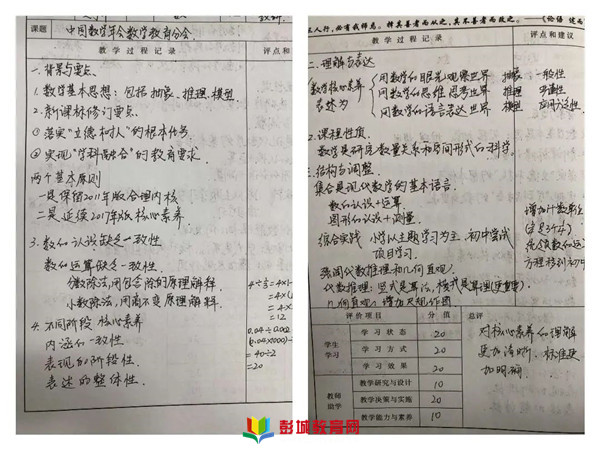 课题 中国数学年会数学教育分会
教学过程记录 评点和
一.背景与要点.
1.数学基本思想:包括抽象、推理、模型.
2.新课标修订要点.
① 落实"立德树人"的根本任务.
② 实现"学科融合"的教育要求.
两个基本原则
一是保留2011年版合理内核
二是延续2017年版核心素养
3.数的认识缺乏一致性
数的运算缺乏一致性.
分数除法,用包含除的原理解释.
小数除法,用商不变原理解释.
=12
0.04÷0.002
=40÷2
=20
4.不同阶段核心素养
内涵的一致性
表现的阶段性
表述的整体性.
人行,必有我师焉。择其善者而从之,其不善者而改之。——《论语 述而
教学过程记录 评点和建议
二.理解与表达
数学核心素养
表述为
用数学的眼光观察世界 抽象 一般性
用数学的思维思考世界 推理
用数学的语言表达世界 模型
2.课程性质.
数学是研究数量关系和空间形式的科学.
三.结构与调整.
集合是现代数学的基本语言.
数的认识+运算.
图形的认识+测量.
综合实践 小学以主题学习为主 初中尝试
项目学习.
强调代数推理和几何直观.
代数推理:竖式是算法,横式是算理
几何直观:增加尺规作图
增加计数单位
方程移到初中
评价项目 分值 总评
学生学习
学习状态 20
学习方式 20
学习效果 20
教师助学
教学研究与设计 10
教学决策与实施 20
教学能力与素养 10
对核心素养的理解
更加清晰,标准更
加明确.
彭城教育网